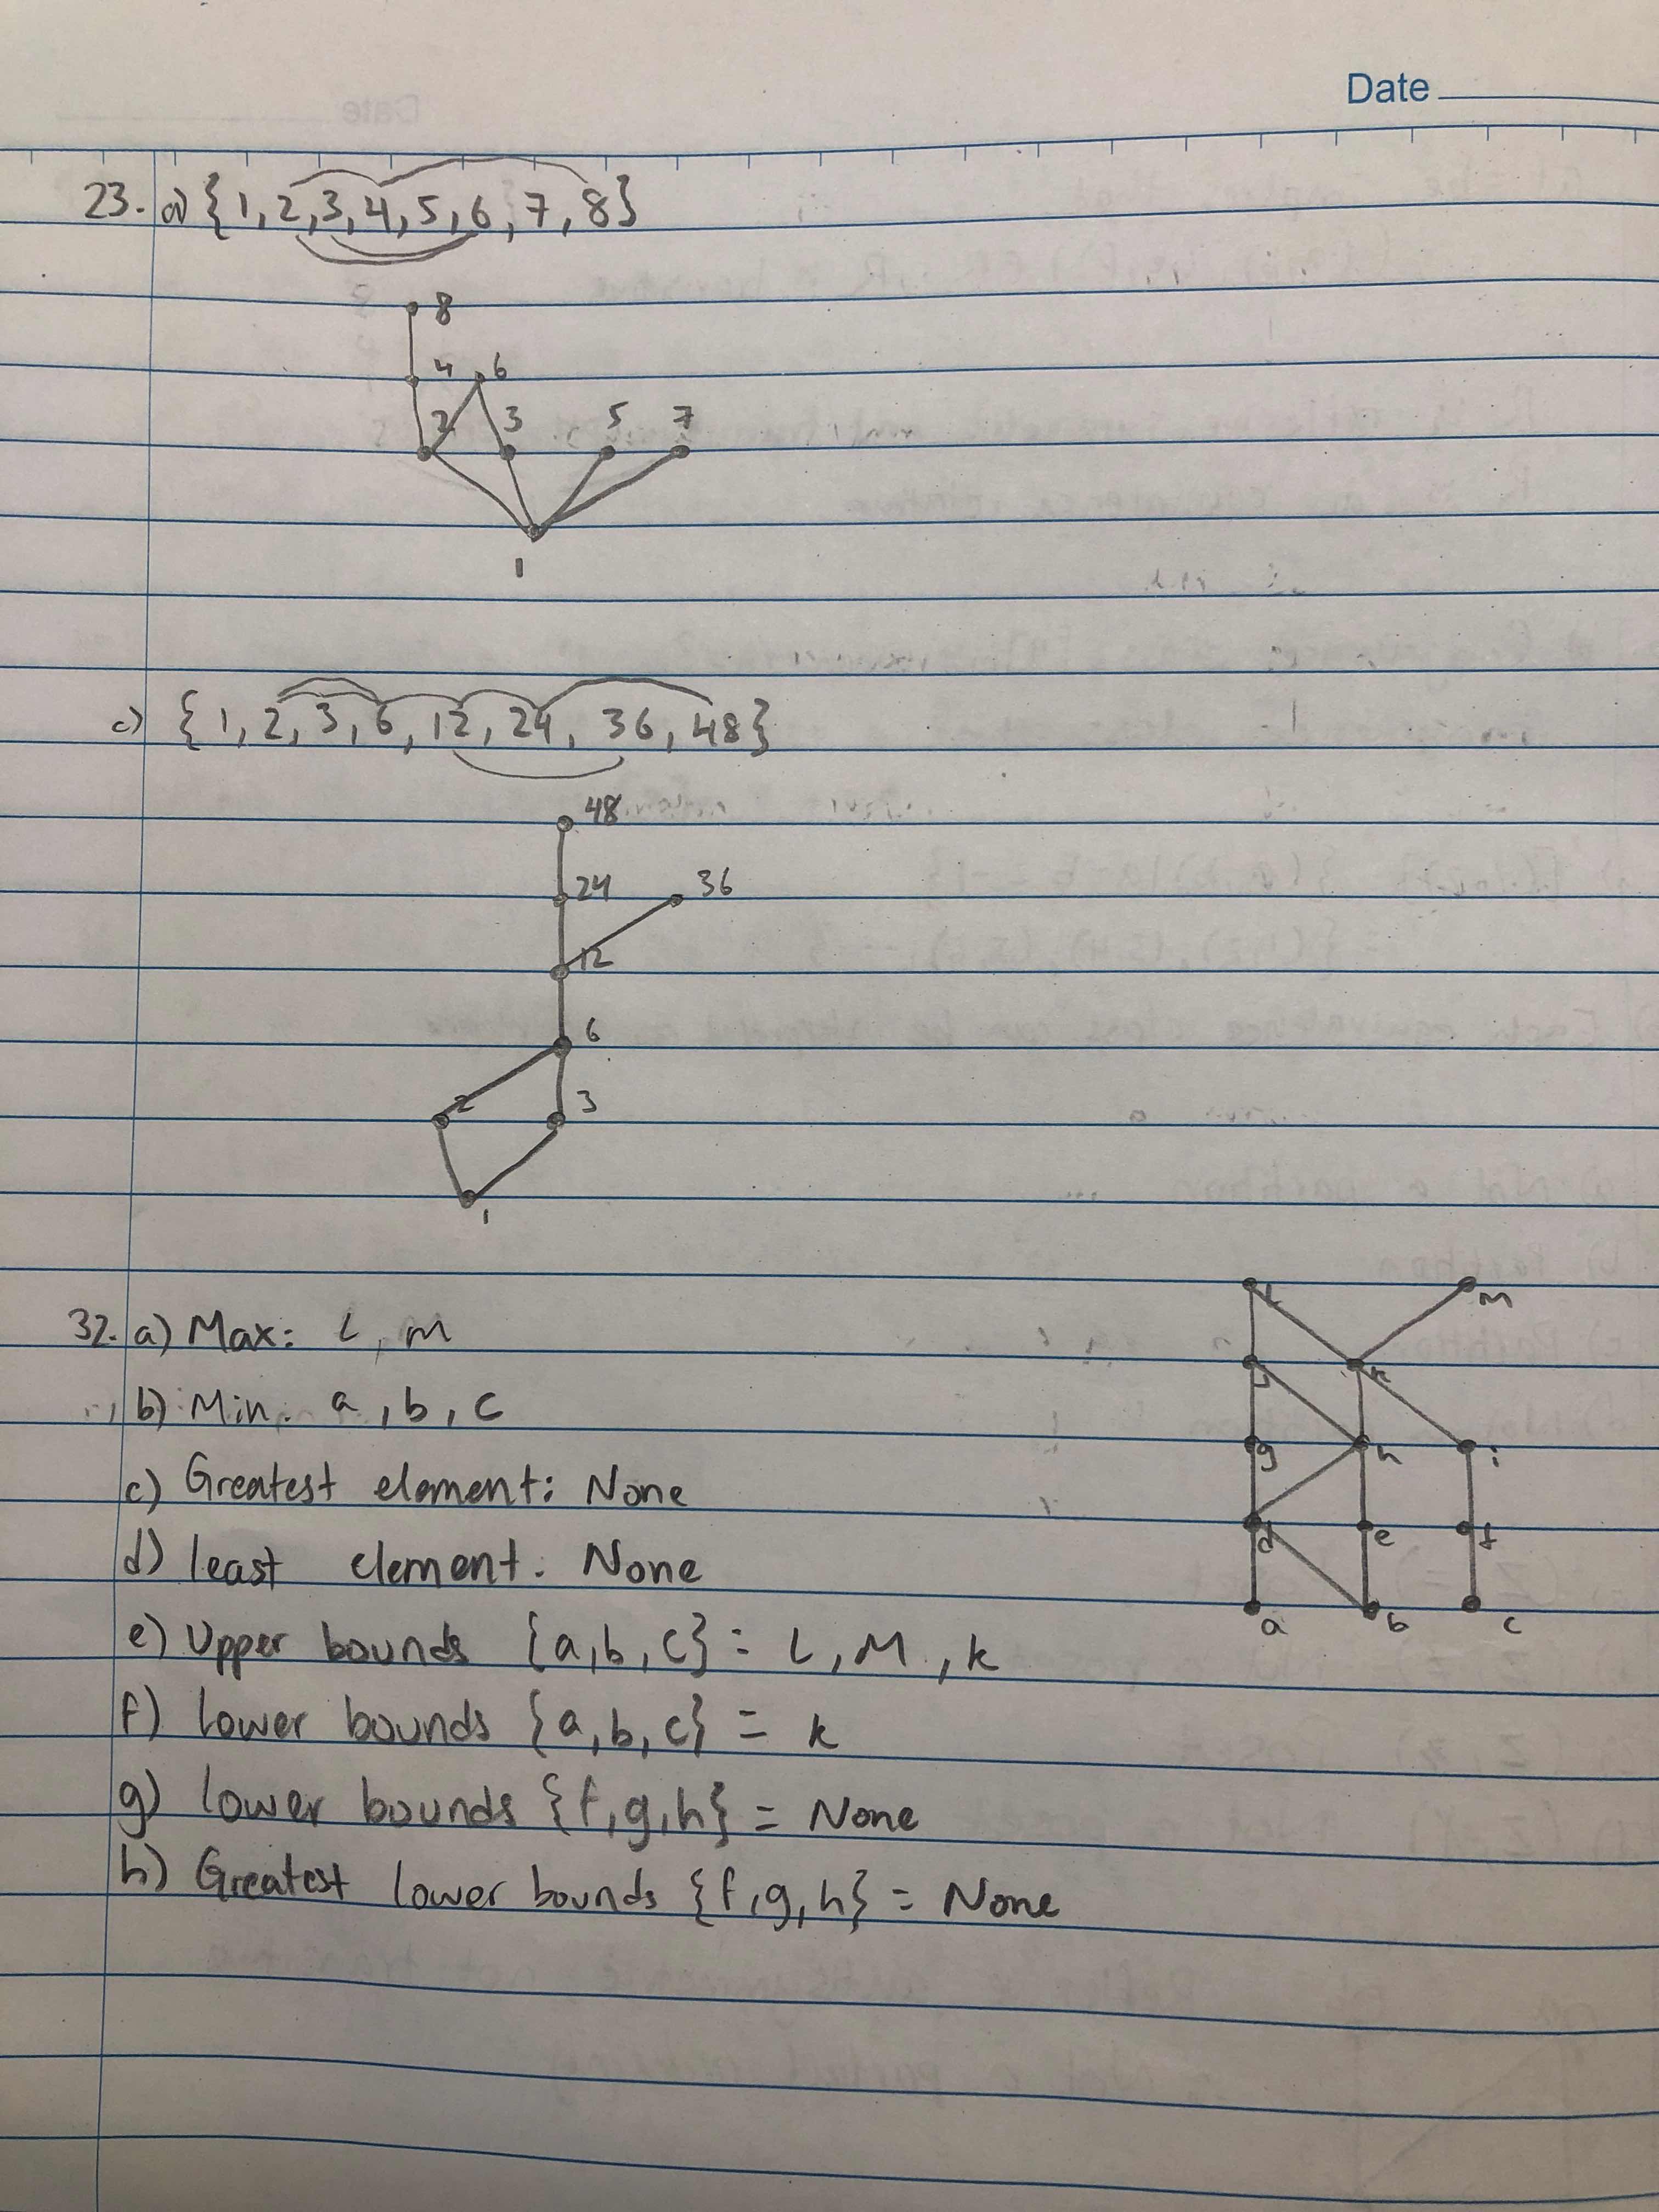 Date
23. a) {1, 2, 3, 4, 5, 6, 7, 8}
8
4 6
2 3 5 7
1
c) {1, 2, 3, 6, 12, 24, 36, 48}
48
24 36
12
6
2 3
1
L M
32. a) Max: L, M
j k
b) Min: a, b, c
g h i
c) Greatest element: None
d e f
d) least element: None
a b c
e) Upper bounds {a, b, c} = L, M, k
f) lower bounds {a, b, c} = k
g) lower bounds {f, g, h} = None
h) Greatest lower bounds {f, g, h} = None